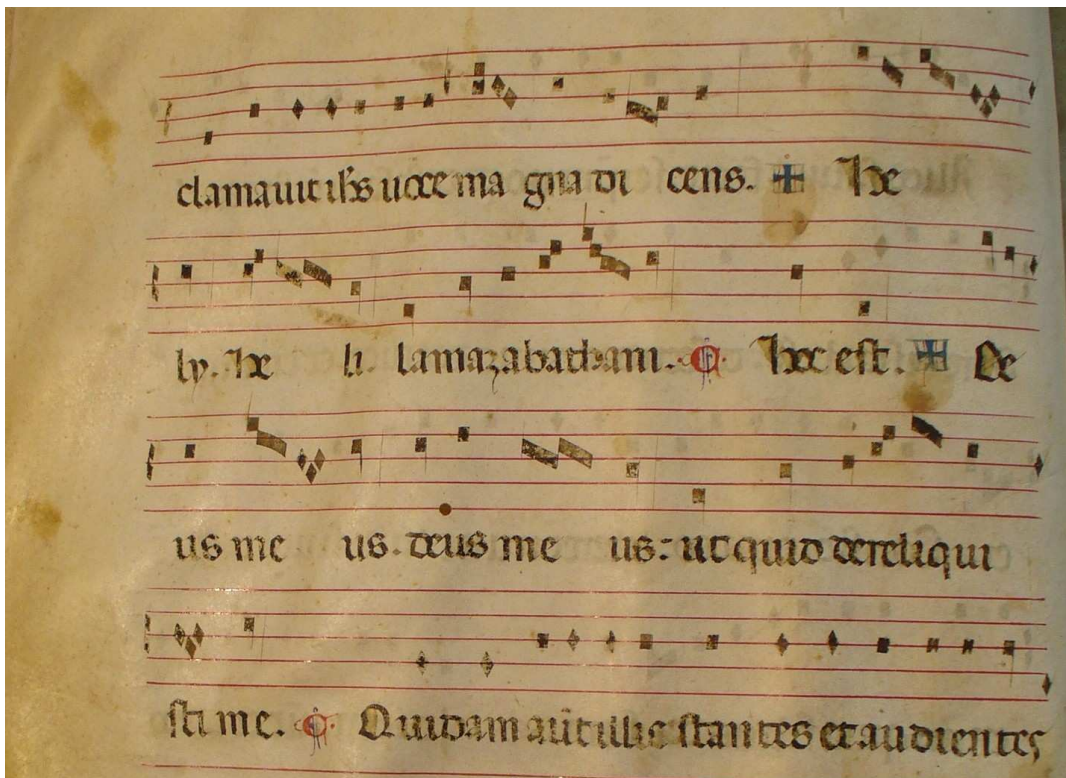 clamauit ihs uoce ma gna di cens. ✠ he
ly. he li. lamazabathani. C hoc est. ✠ De
us me us. deus me us: ut quid dereliqui
sti me. C Quidam aut illic stantes et audientes